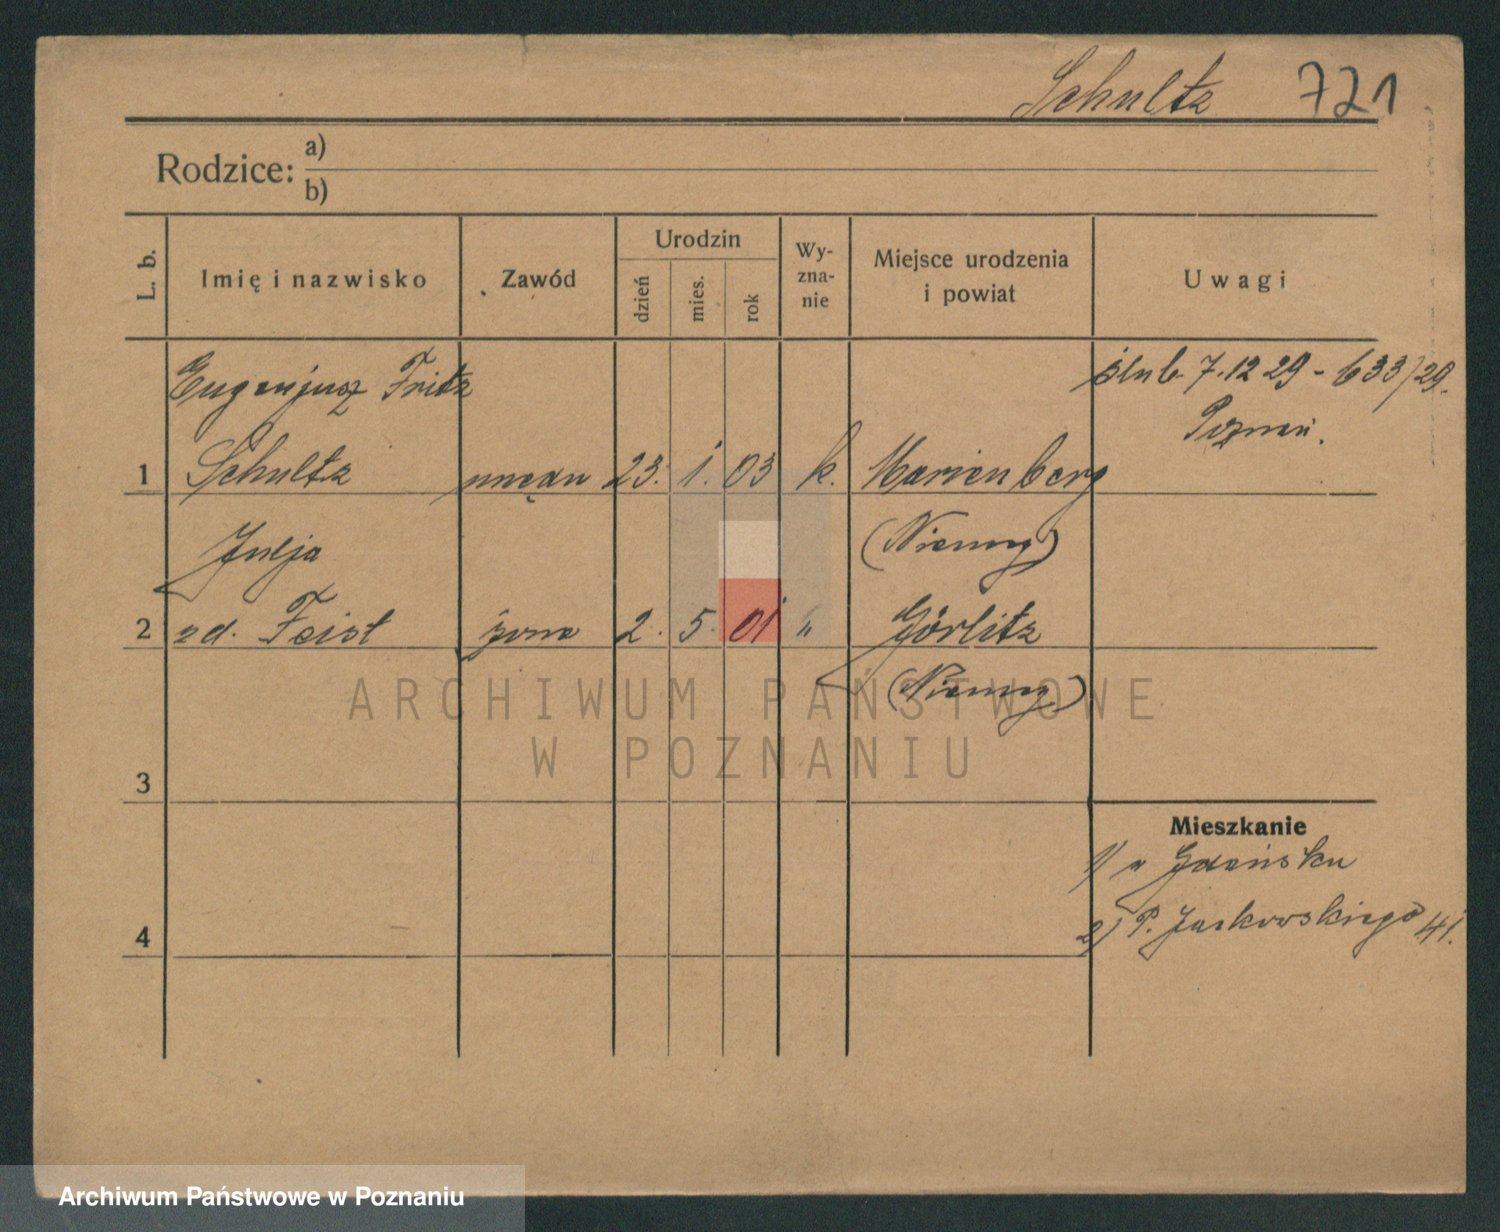 Schultz 721
Rodzice: a)
b)
L. b.
Imię i nazwisko
Zawód
Urodzin
dzień
mies.
rok
Wy-
zna-
nie
Miejsce urodzenia
i powiat
Uwagi
Eugenjusz Fritz
ślub 7.12 29 - 633/29.
Poznań.
1 Schultz urzędn 23. 1. 03 k. Marienberg
Julja
(Niemcy)
2 zd. Feist żona 2. 5. 01 " Görlitz
(Niemcy)
3
Mieszkanie
1) w Gdańsku
2) P. Jackowskiego 41.
4
ARCHIWUM PAŃSTWOWE
W POZNANIU
Archiwum Państwowe w Poznaniu